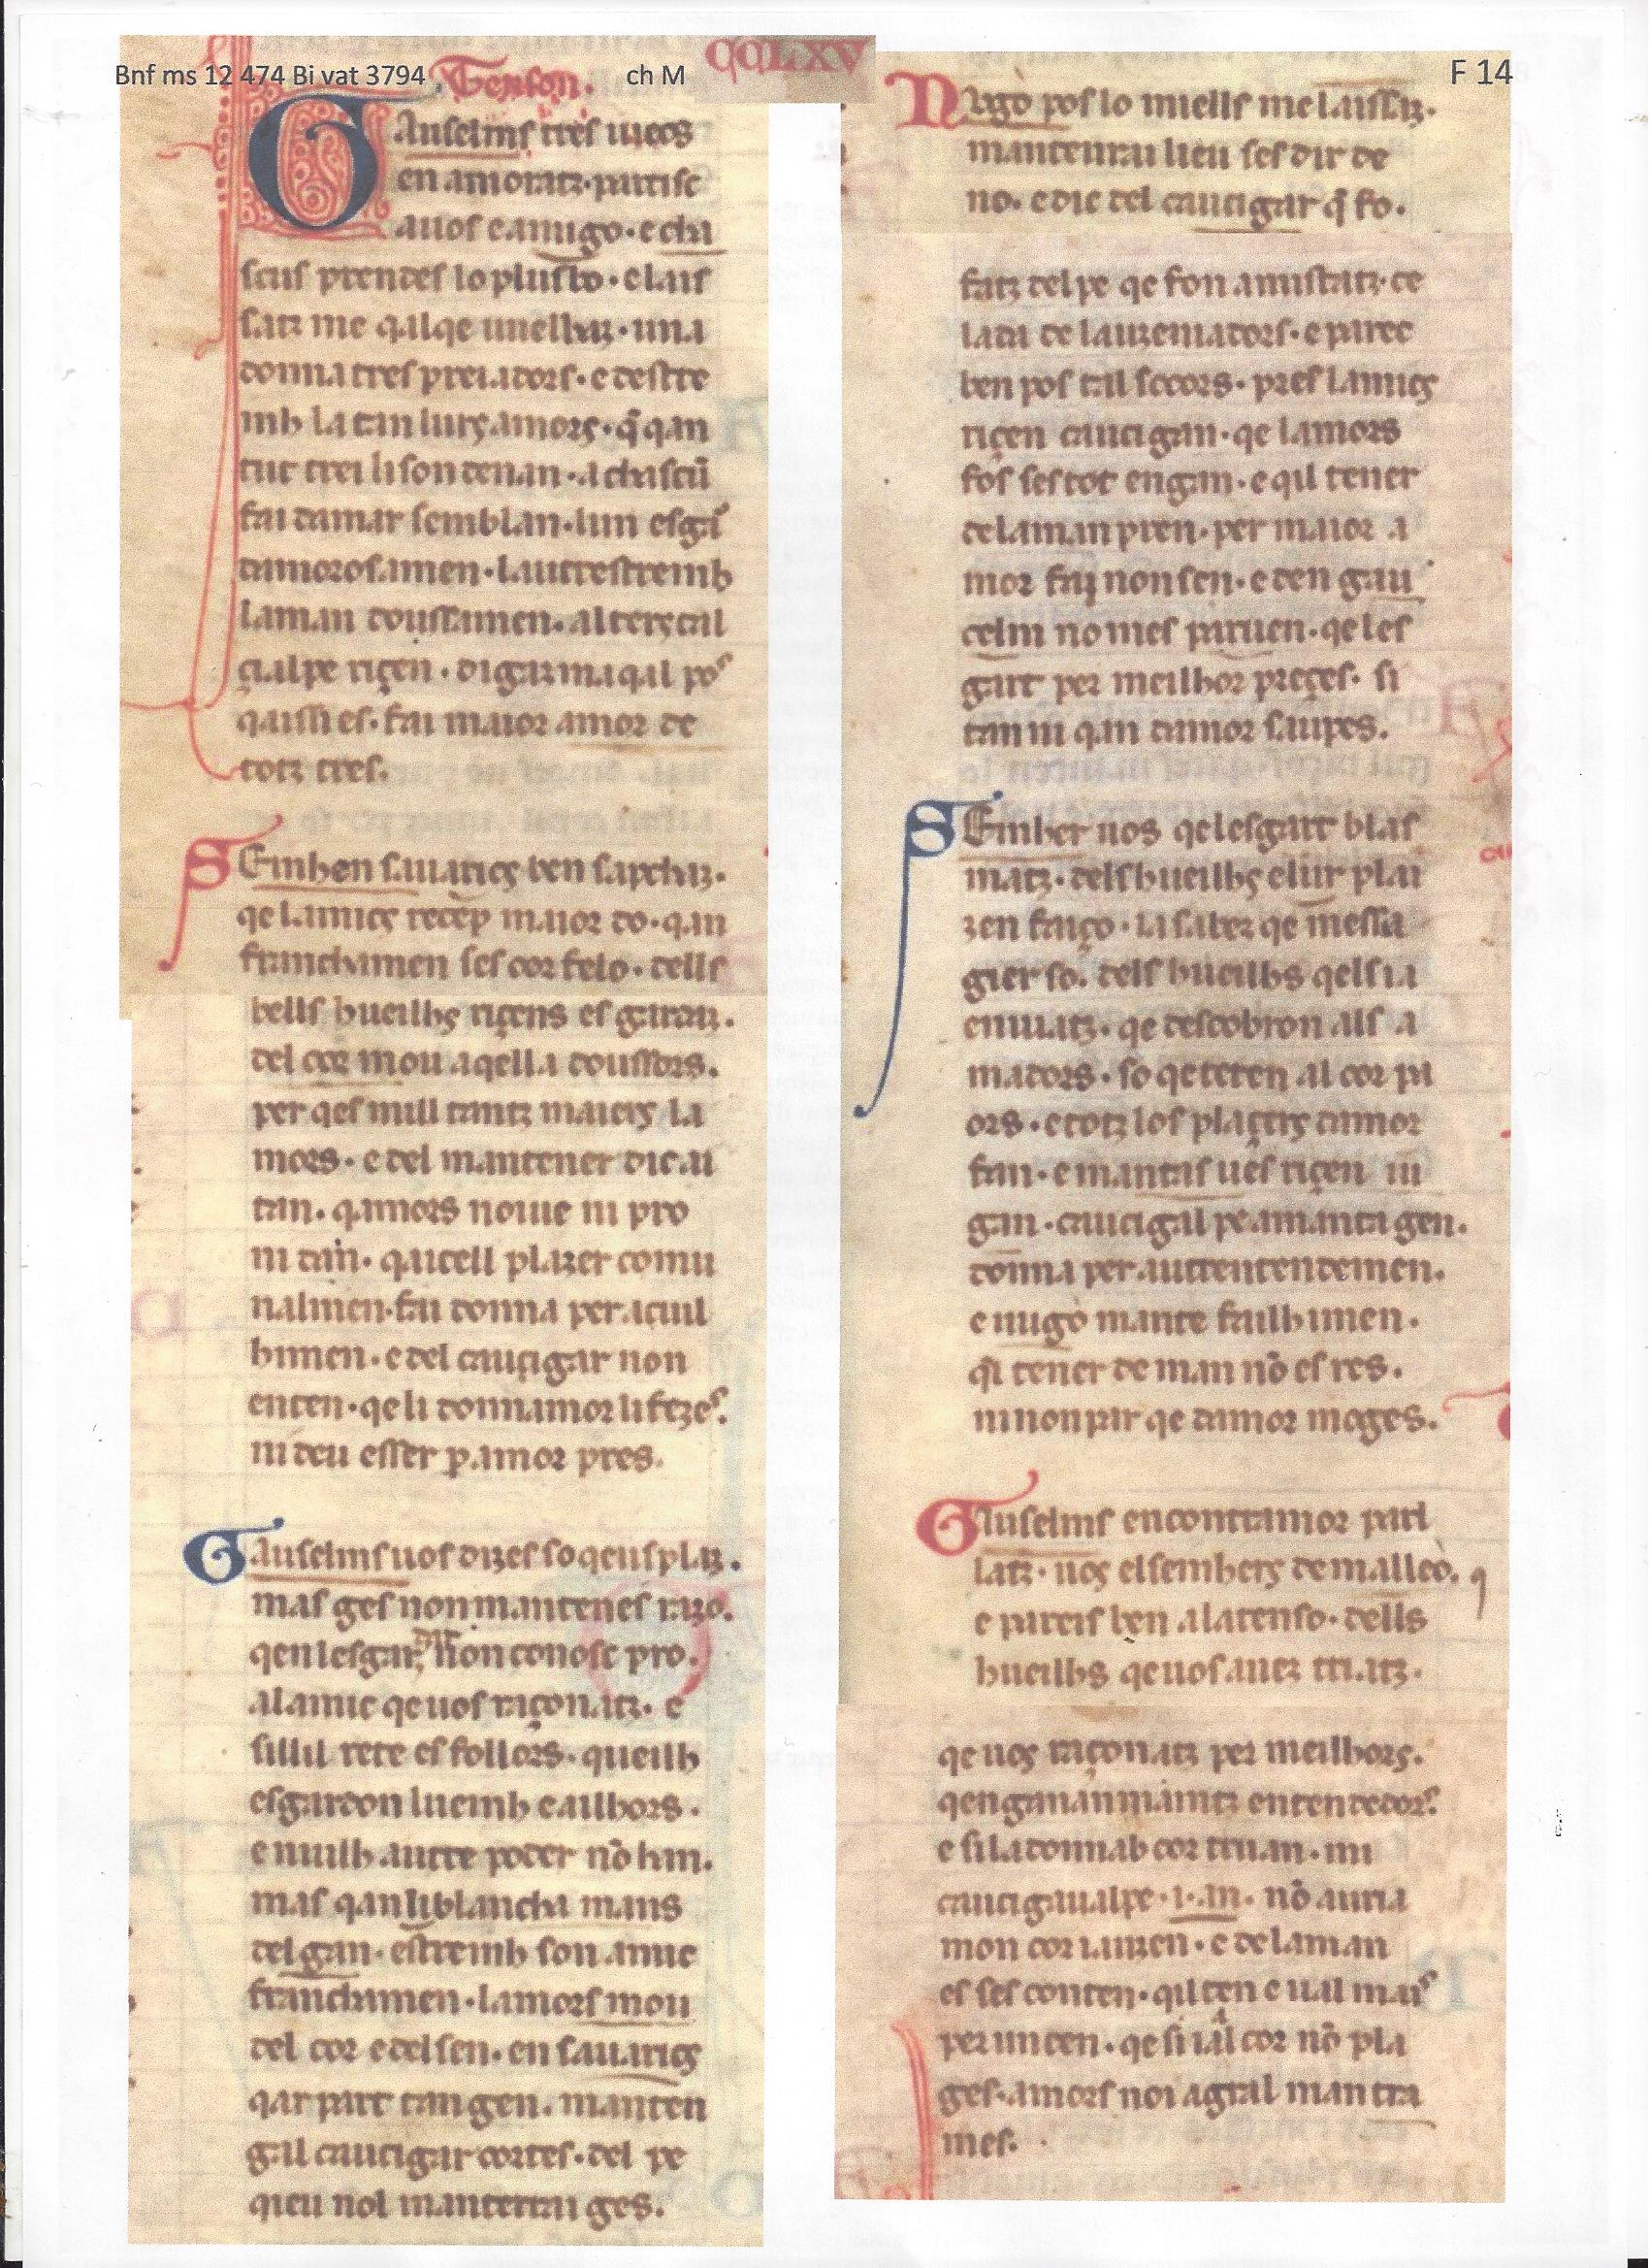 Bnf ms 12 474 Bi vat 3794
ch M
CCLXV
F 14
Tenson.
GAuselms tres iuecs
en amoratz. partisc
a uos e anugo. e cha
scus prendes lo plus bo. e lais
satz me qalqe uuelhaz. una
donna tres preiadors. e destre
mh la tan lurs amors. q̄ qan
tut trei li son denan. a chascū
fai damar semblan. lun esgar
damorosamen. lautrestremh
la man doussamen. al terç cal
ciga lpe riçen. digaz ma qal pos
qaissi es. fai maior amor de
totz tres.
SEinhen sauarics ben sapchaz.
qe lamics recep maior do. qan
franchamen ses cor felo. dells
bells hueilhs riçens es garatz.
del cor mou aqella doussors.
per qes mill tantz maiers la
mors. e del mantener dic ai
tan. qamors noiue ni pro
ni dan. qaitell plazer comu
nalmen. fai donna per acuil
himen. e del caucigar non
enten. qe li donnamor li fezes.
ni deu esser p amor pres.
Gauselms uos dizes so qeus plaz.
mas ges non mantenes razo.
qen lesgar non conosc pro.
al amic qe uos raçonatz. e
sillil rete es follors. queilh
esgardon lueinh e ailhors.
e nuilh autre poder nō han.
mas qan li blancha mans
del gan. estremh son amic
franchamen. lamors mou
del cor e del sen. en sauarics
qar part tan gen. manten
gal caucigar cortes. del pe
qieu nol manterrai ges.
Nugo pos lo miells me laissaz.
mantenrai lieu ses dir de
no. e dic del caucigar q̄ fo.
fatz del pe qe fon amistatz. ce
lada de lauzeniadors. e parec
ben pos tal socors. pres lamics
riçen caucigan. qe lamors
fos ses tot engan. e qil tener
de la man pren. per maior a
mor fai nonsen. e den gau
celm no mes paruen. qe les
gart per meilhor preçes. si
tan ni qan damor saupes.
SEinher uos qe lesgart blas
matz. dels hueilhs e lur plai
zen faiço. ia saber qe messa
gier so. dels hueilhs qels ia
enuiatz. qe descobron als a
madors. so qe teten al cor pa
ors. e totz los placers damor
fan. e mantas ues riçen iu
gan. caucigal pe a manta gen.
donna per autrentendemen.
e nugo mante failhimen.
qi tener de man nō es res.
ni non par qe damor moges.
Gauselms encontramor parl
latz. uos el seinhers de malleo.
e pareis ben a la tenso. dells
hueilhs qe uos auez triatz.
qe uos raçonatz per meilhors.
qenganan maintz entendedors.
e si la donnab cor truan. mi
caucigaualpe .i. an. nō auria
mon cor iauzen. e de la man
es ses conten. qil ten e ual mais
per un cen. qe si ial cor nō pla
ges. amors noi agral man tra
mes.